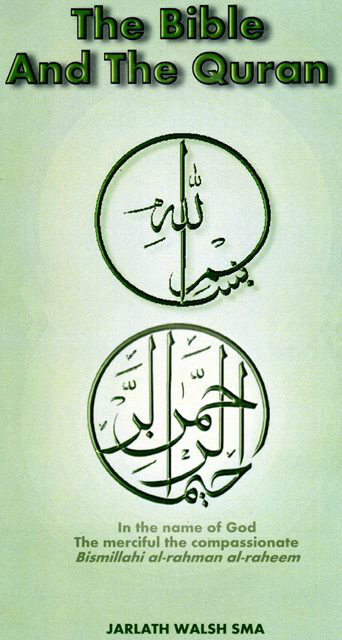 The Bible
And The Quran
بسم الله
الرحمن الرحيم
In the name of God
The merciful the compassionate
Bismillahi al-rahman al-raheem
JARLATH WALSH SMA